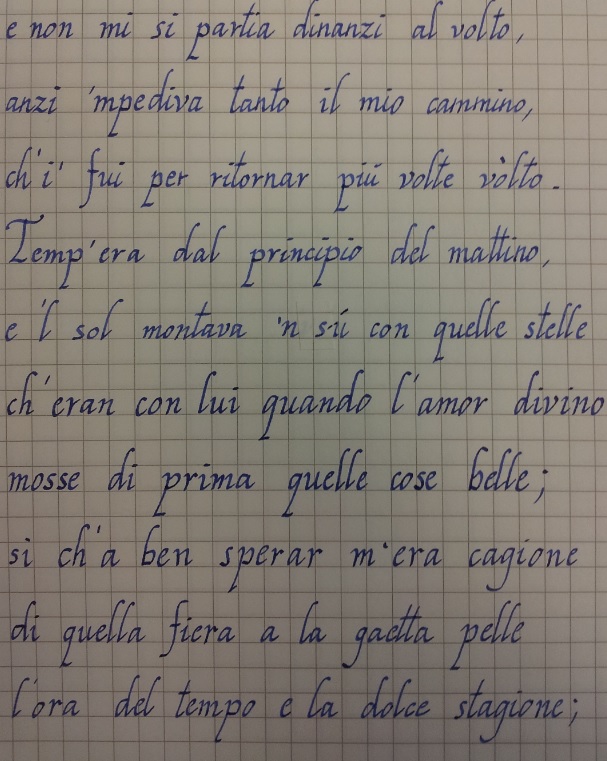 e non mi si partia dinanzi al volto,
anzi 'mpediva tanto il mio cammino,
ch'i' fui per ritornar più volte vòlto.
Temp'era dal principio del mattino,
e 'l sol montava 'n sú con quelle stelle
ch'eran con lui quando l'amor divino
mosse di prima quelle cose belle;
sì ch'a ben sperar m'era cagione
di quella fiera a la gaetta pelle
l'ora del tempo e la dolce stagione;